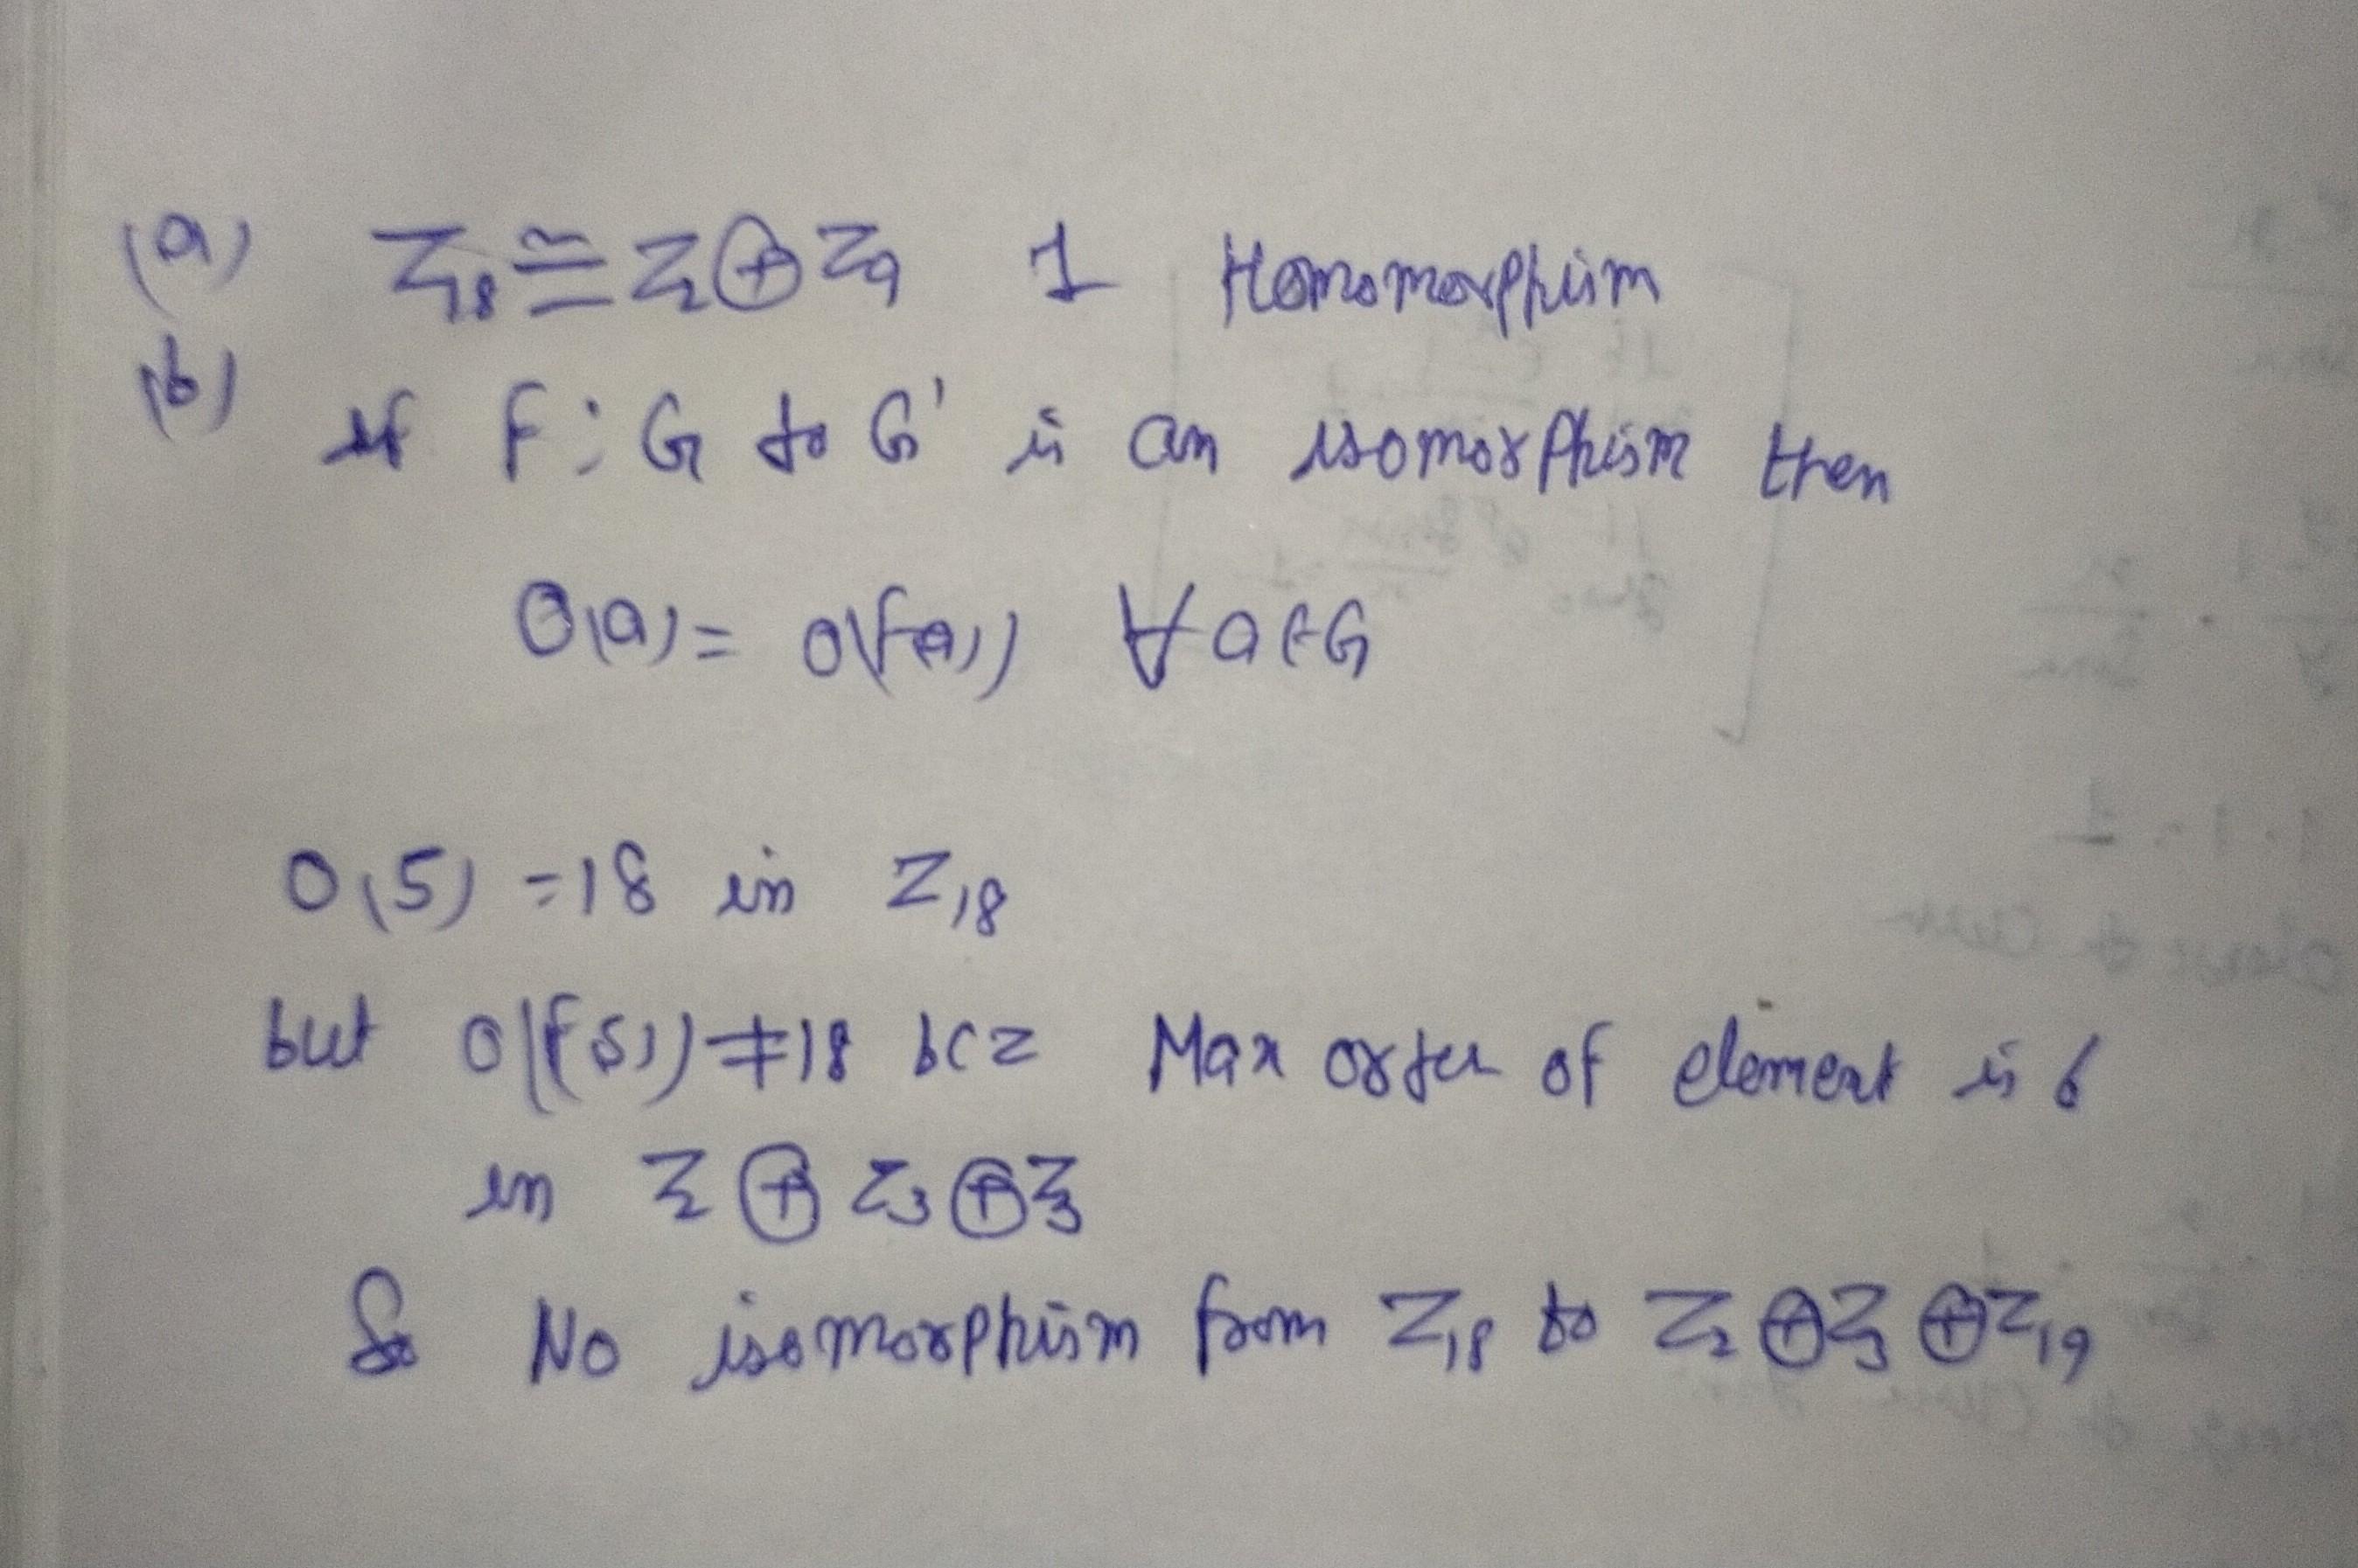 (a) Z₁₈ ≅ Z₂ ⊕ Z₉ 1 Homomorphism
(b) if F : G to G' is an isomorphism then
O(a) = O(F(a)) ∀ a ∈ G
O(5) = 18 in Z₁₈
but O(F(5)) ≠ 18 bcz Max order of element is 6
in Z₂ ⊕ Z₃ ⊕ Z₃
So No isomorphism from Z₁₈ to Z₂ ⊕ Z₃ ⊕ Z₁₉